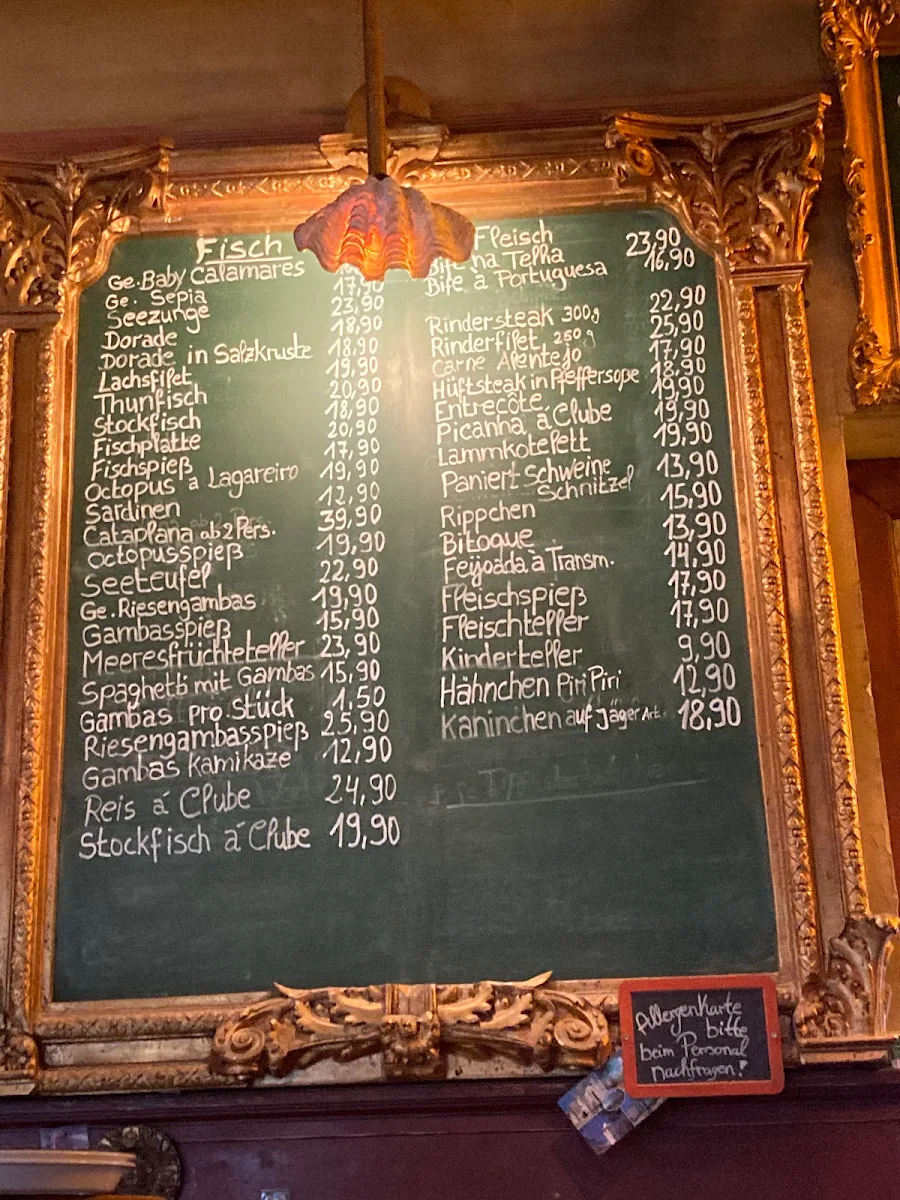 Fisch
Ge.Baby Calamares
Ge. Sepia 17,90
Seezunge 23,90
Dorade 18,90
Dorade in Salzkruste 18,90
Lachsfilet 19,90
Thunfisch 20,90
Stockfisch 18,90
Fischplatte 20,90
Fischspieß 17,90
Octopus a Lagareiro 19,90
Sardinen 12,90
Cataplana ab 2 Pers. 39,90
Octopusspieß 19,90
Seeteufel 22,90
Ge.Riesengambas 19,90
Gambasspieß 15,90
Meeresfrüchteteller 23,90
Spaghetti mit Gambas 15,90
Gambas pro Stück 1,50
Riesengambasspieß 25,90
Gambas Kamikaze 12,90
Reis á Clube 24,90
Stockfisch á Clube 19,90
Fleisch
Bife na Telha 23,90
Bife à Portuguesa 16,90
Rindersteak 300g 22,90
Rinderfilet, 250g 25,90
Carne Alentejo 17,90
Hüftsteak in Pfeffersoße 18,90
Entrecôte 19,90
Picanha á Clube 19,90
Lammkotelett 19,90
Paniert Schweine 13,90
Schnitzel
Rippchen 15,90
Bitoque 13,90
Feijoada à Transm. 14,90
Fleischspieß 17,90
Fleischteller 17,90
Kinderteller 9,90
Hähnchen Piri Piri 12,90
Kaninchen auf Jäger Art. 18,90
Allergenkarte
bitte
beim Personal
nachfragen!